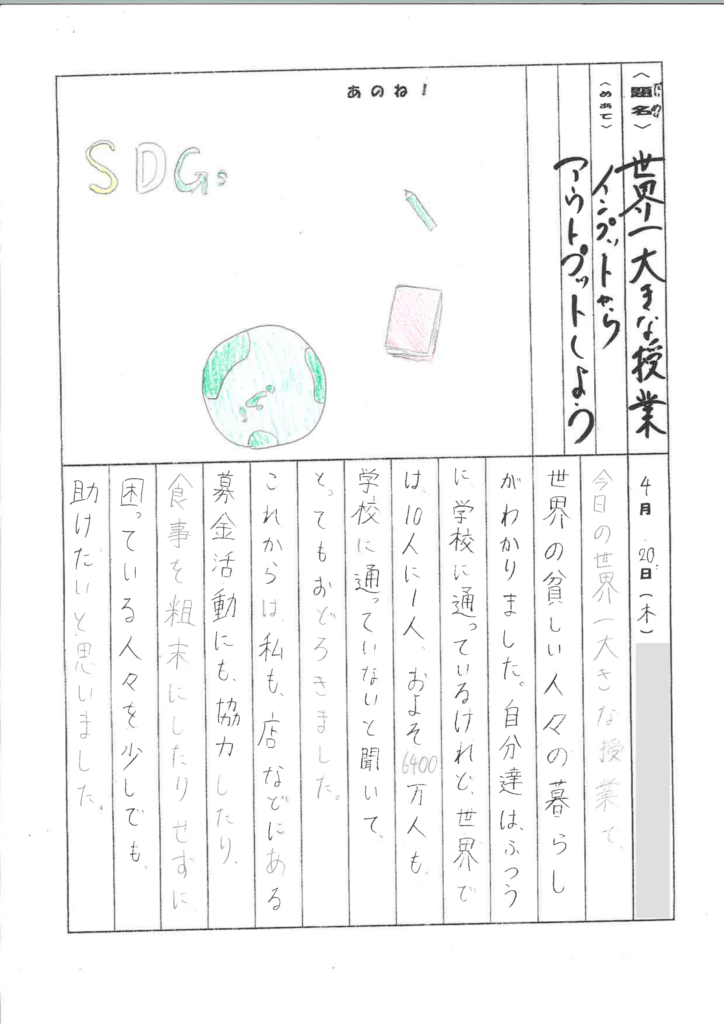 〈題名〉世界一大きな授業
〈めあて〉インプットから
アウトプットしよう
あのね！
SDGs
4月20日(木)
今日の世界一大きな授業で、
世界の貧しい人々の暮らし
がわかりました。自分達は、ふつう
に学校に通っているけれど、世界で
は、10人に1人、およそ6400万人も、
学校に通っていないと聞いて、
とってもおどろきました。
これからは、私も、店などにある
募金活動にも、協力したり、
食事を粗末にしたりせずに
困っている人々を少しでも、
助けたいと思いました。